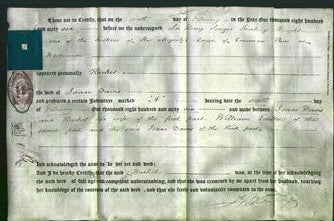 These are to Certify, that on the sixth day of February in the Year One thousand eight hundred
and sixty six before me the undersigned Sir Henry Singer Keating Knight
one of the Justices of Her Majesty's Court of Common Pleas at
Westminster
appeared personally Rachel
the wife of Isaac Davis
and produced a certain Indenture marked A bearing date the
One thousand eight hundred and sixty six and made between Isaac Davis
and Rachel his wife of the first part William of the
second part and the said Isaac Davis of the third part
And acknowledged the same to be her act and deed;
And I do hereby Certify that the said Rachel was, at the time of her acknowledging
the said deed, of full age and competent understanding, and that she was examined by me apart from her husband, touching
her knowledge of the contents of the said deed, and that she freely and voluntarily consented to the same.